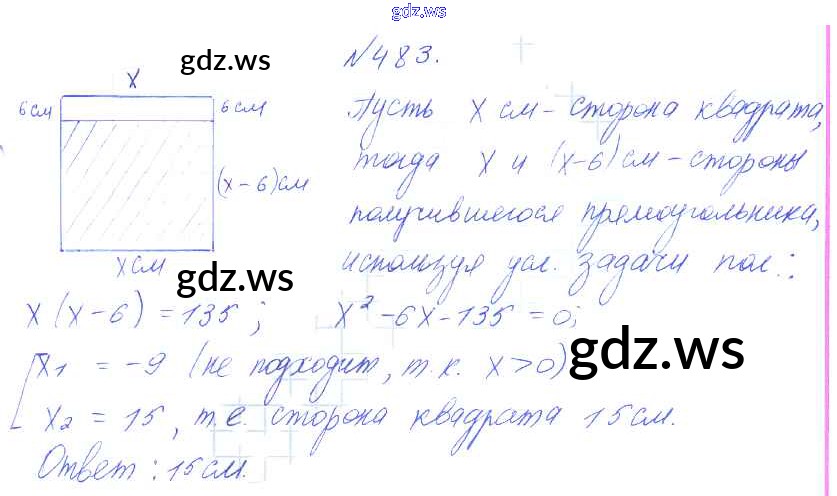 gdz.ws
№483.
gdz.ws
x
6 см
6 см
(x-6) см
x см
Пусть x см - сторона квадрата,
тогда x и (x-6) см - стороны
получившегося прямоугольника,
используя усл. задачи пол.:
gdz.ws
x(x-6) = 135; x² - 6x - 135 = 0;
x₁ = -9 (не подходит, т.к. x>0)
gdz.ws
x₂ = 15, т.е. сторона квадрата 15 см.
Ответ: 15 см.